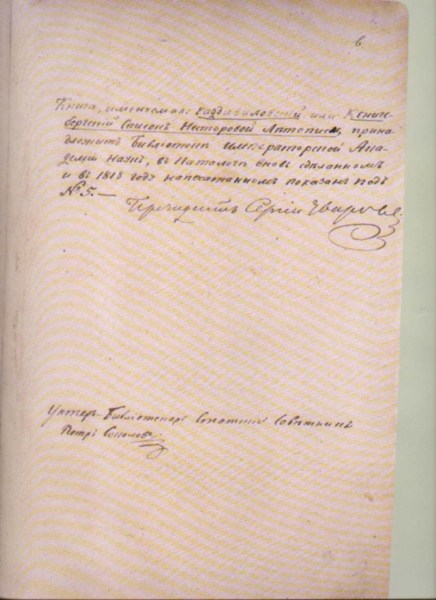 6
Книга, именуемая: Радзивиловский или Кениге-
бергский Списокъ Несторовой Летописи, прина-
длежитъ Библіотекѣ Императорской Ака-
деміи Наукъ, въ Каталогѣ вновь сдѣланномъ
и въ 1818 годѣ напечатанномъ показана подъ
№ 5. —
Президентъ Сергій Уваровъ.
Унтер-Библіотекарь Статскій Совѣтникъ
Петръ Соколовъ